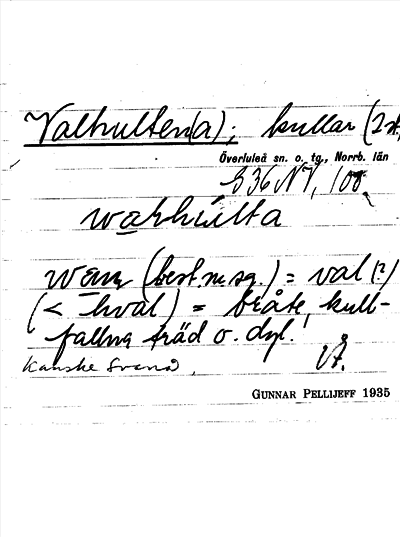 Valhulten(a); kullar (2 st,
Överluleå sn. o. tg., Norrb. län
G 36 NV, 100
wahhúlta
(best. m. sg.) = val (?)
(< hval) = bråte, kull-
fallna träd o. dyl.
Kanske
VÅ.
GUNNAR PELLIJEFF 1935